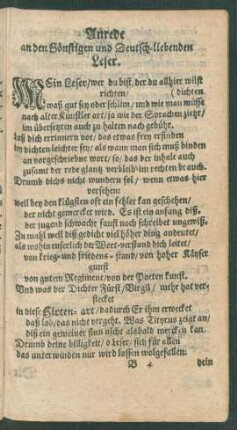 Anrede
an den Gönstigen und Deutsch-liebenden
Leser.
MEin Leser/ wer du bist, der du allhier wilst
richten/ (dichten
waß gut sey oder schlim/ und wie man müsse
nach alter Künstler art/ ja wie der Sprachen ziehr/
im übersehen auch zu halten nach gebühr.
laß dich erinnern vor/ das etwas frey erfinden
im dichten leichter sey/ als wann man sich muß binden
an vorgeschriebne wort/ so/ das der inhalt auch
zusamt der rede glantz verbleib im rechten brauch.
Drumb dichs nicht wundern sol/ wenn etwas hier
versehen:
weil bey den klügsten oft ein fehler kan geschehen/
der nicht gemercket wird. Es ist ein anfang diß,
der jugend schwache faust noch schreibet ungewiß.
Zu mahl weil diß gedicht viel höher ding andeutet/
als wohin euserlich der Wort-verstand dich leitet/
von krieg- und friedens-stand/ von hoher Käyser
gunst
von gutem Regiment/ von der Poeten kunst.
Und was der Dichter Fürst/ Virgil/ mehr hat ver-
stecket
in diese Hirten-art/ dadurch Er ihm erwecket
daß lob/ das nicht vergeht. Was Tityrus zeigt an/
diß ein gemeiner sinn nicht alsbald mercken kan.
Drumb deine billigkeit/ o Leser/ sich für allen
das unterwinden nur wird lassen wolgefallen:
B 4 dein